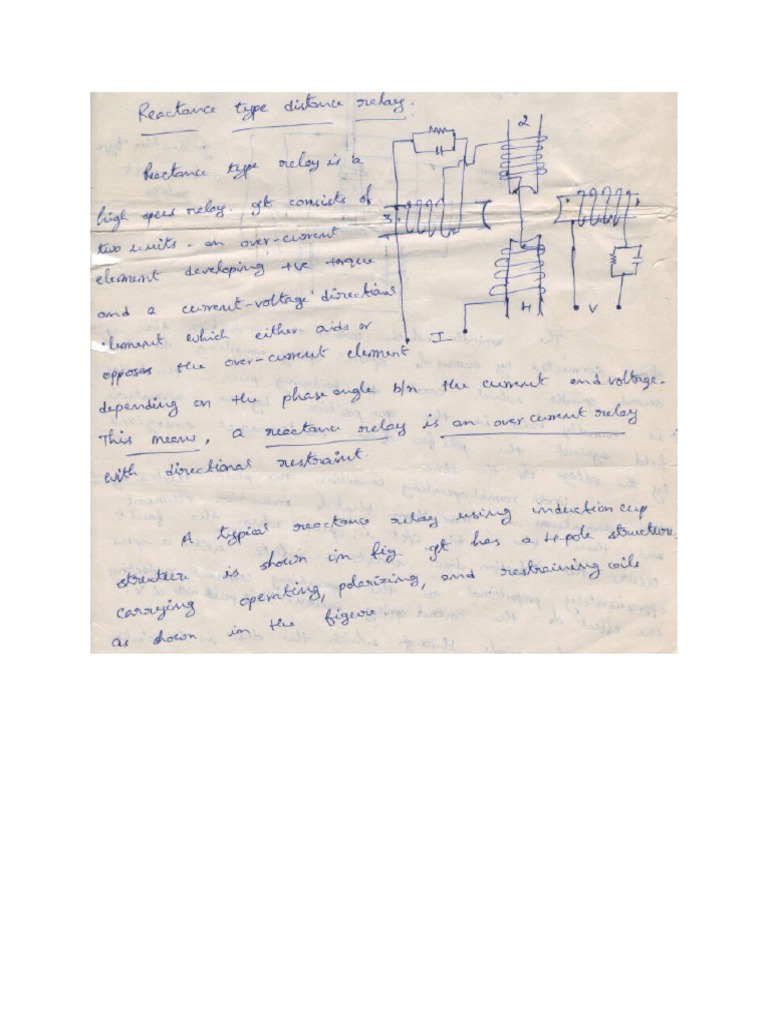 Reactance type distance relay.
Reactance type relay is a
high speed relay. It consists of
two units - an over-current
element developing +ve torque
and a current-voltage directional
element which either aids or
opposes the over-current element
depending on the phase angle b/n the current and voltage.
This means, a reactance relay is an over current relay
with directional restraint.
A typical reactance relay using induction cup
structure is shown in fig. It has a 4-pole structure
carrying operating, polarizing, and restraining coils
as shown in the figure
2
3
I
4
V